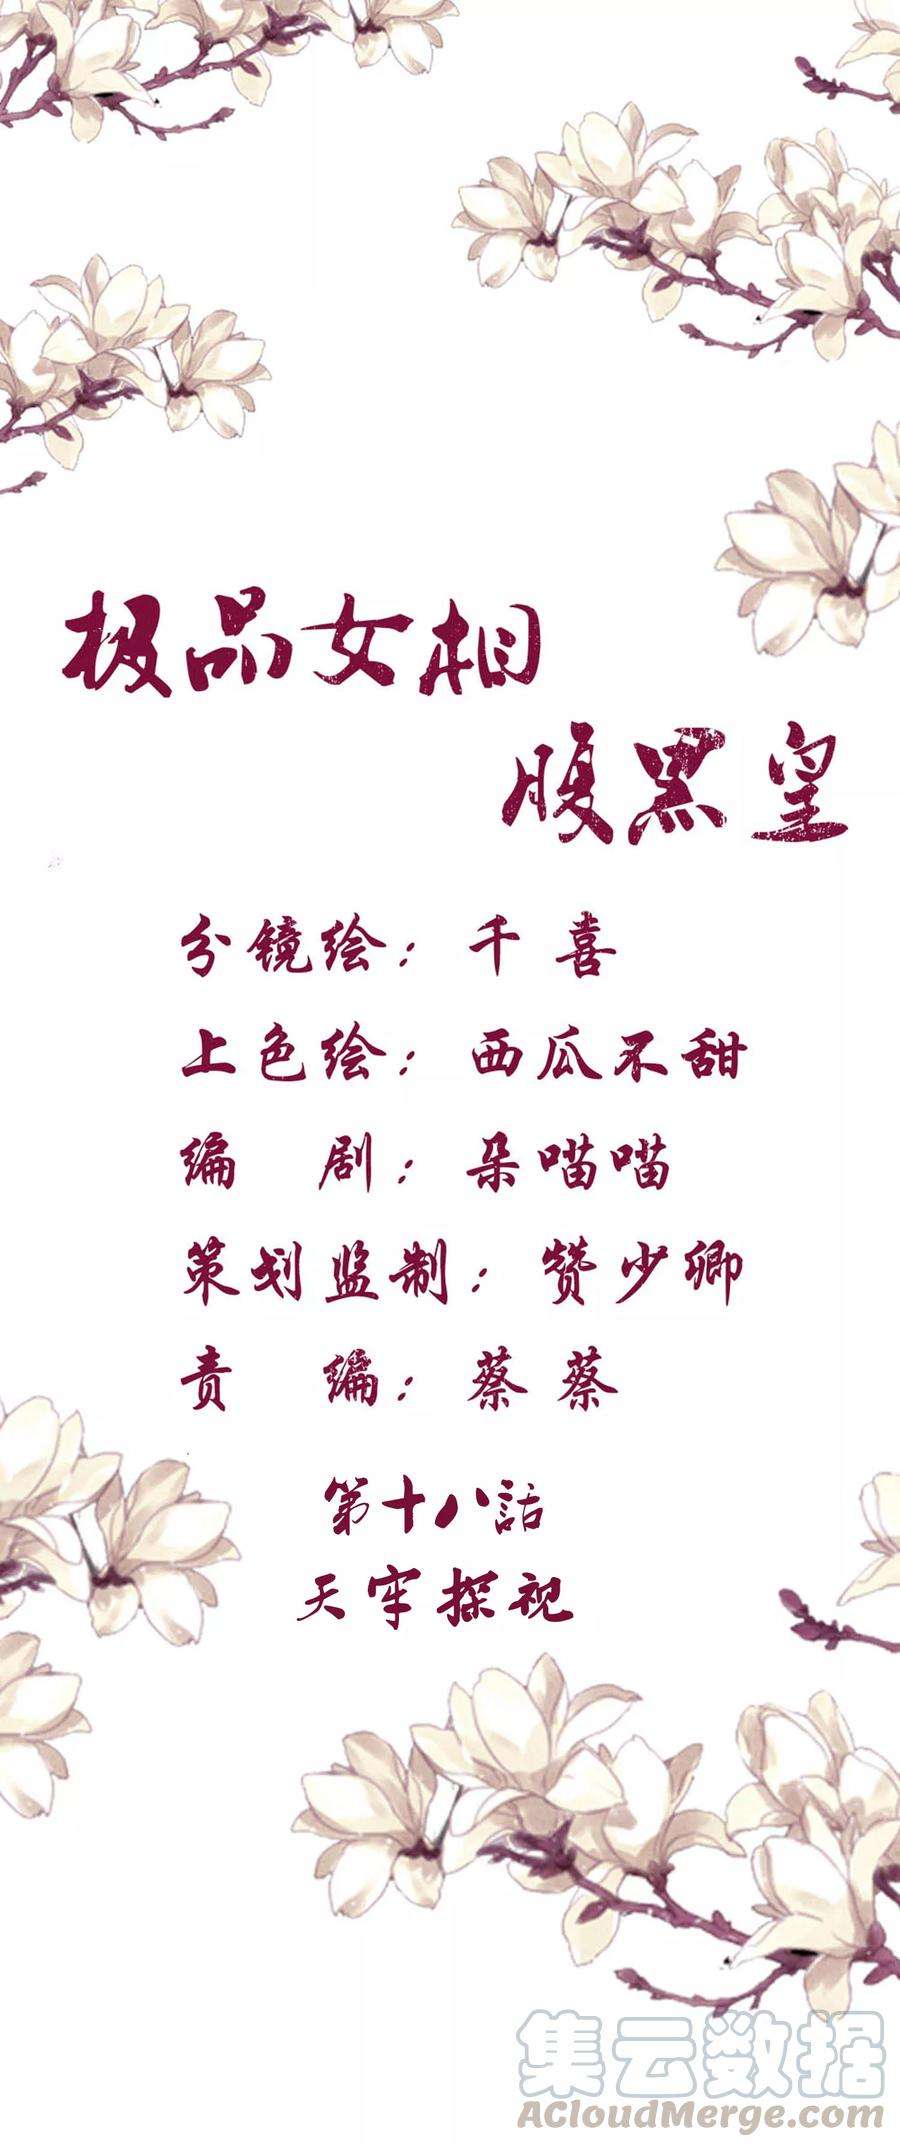 极品女相
腹黑皇
分镜绘：千喜
上色绘：西瓜不甜
编 剧：朵喵喵
策划监制：赞少卿
责 编：蔡蔡
第十八話
天牢探视
集云数据
ACloudMerge.com